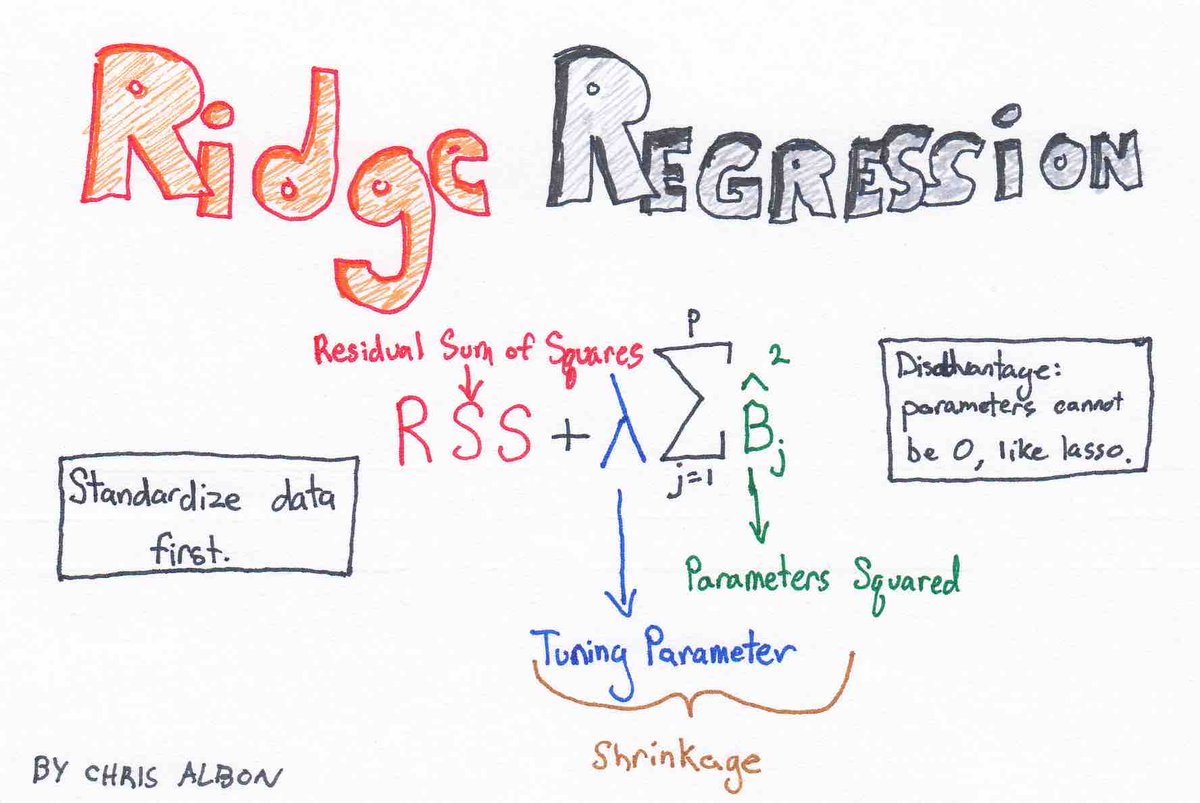 Ridge REGRESSiON
Residual Sum of Squares
RSS + λ ∑ B̂j²
p
j=1
Disadvantage:
parameters cannot
be 0, like lasso.
Standardize data
first.
Parameters Squared
Tuning Parameter
Shrinkage
BY CHRIS ALBON